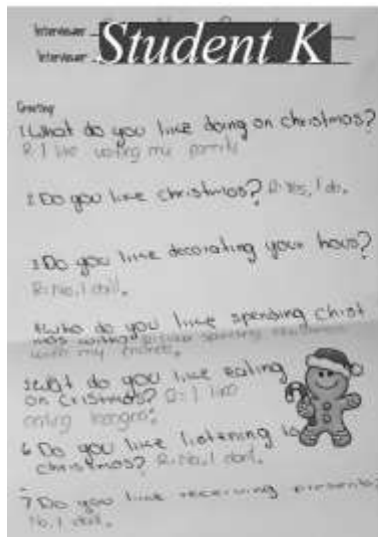 Interviewer
Student K
Interviewer
Greeting
1. What do you like doing on christmas?
R: I like visiting my parents
2. Do you like christmas? R: Yes, I do.
3. Do you like decorating your hous?
R: No, I don't.
4. Who do you like spending christ
mas with? R: I like spending christmas
with my friends.
5. What do you like eating
on cristmas? R: I like
eating
6. Do you like listening to
christmas? R: No, I dont.
7 Do you like receiving presents?
No, I don't.